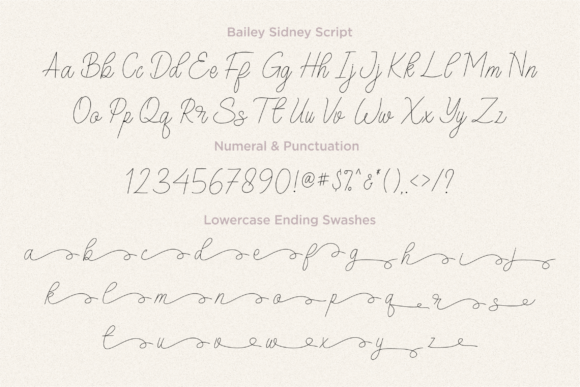 Bailey Sidney Script
Aa Bb Cc Dd Ee Ff Gg Hh Ij Jj Kk Ll Mm Nn
Oo Pp Qq Rr Ss Tt Uu Vv Ww Xx Yy Zz
Numeral & Punctuation
1234567890!@#$%^&*(),.<>/?
Lowercase Ending Swashes
a b c d e f g h i j
k l m n o p q r s
t u v w x y z